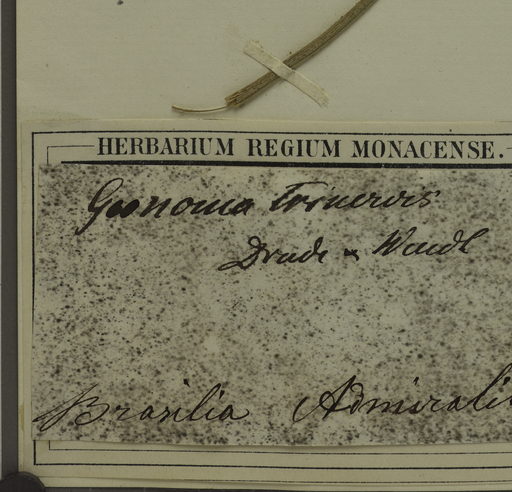 HERBARIUM REGIUM MONACENSE.
Geonoma trinervis
Drude & Wendl
Brasilia Admirali